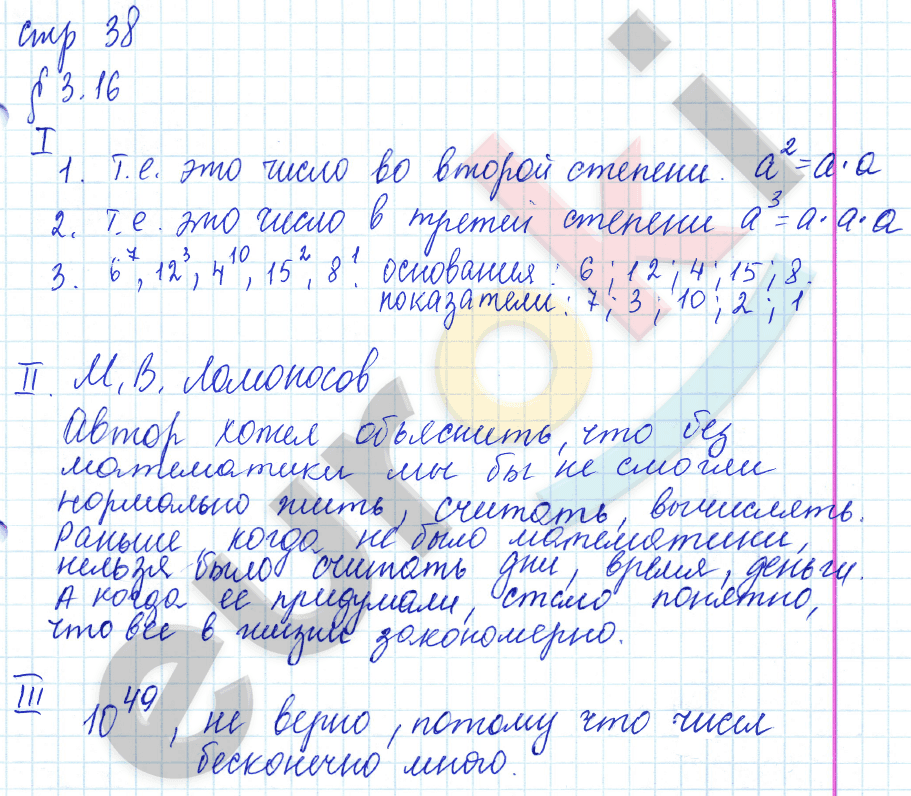 стр 38
§ 3.16
I
1. Т.е. это число во второй степени. a²=a·a
2. т.е. это число в третей степени a³=a·a·a
3. 6⁷, 12³, 4¹⁰, 15², 8¹. основания: 6; 12; 4; 15; 8.
показатели: 7; 3; 10; 2; 1
II. М. В. Ломоносов
Автор хотел объяснить, что без
математики мы бы не смогли
нормально жить, считать, вычислять.
Раньше, когда не было математики,
нельзя было считать дни, время, деньги.
А когда ее придумали, стало понятно,
что все в жизни закономерно.
III
10⁴⁹, не верно, потому что чисел
бесконечно много.
euroki